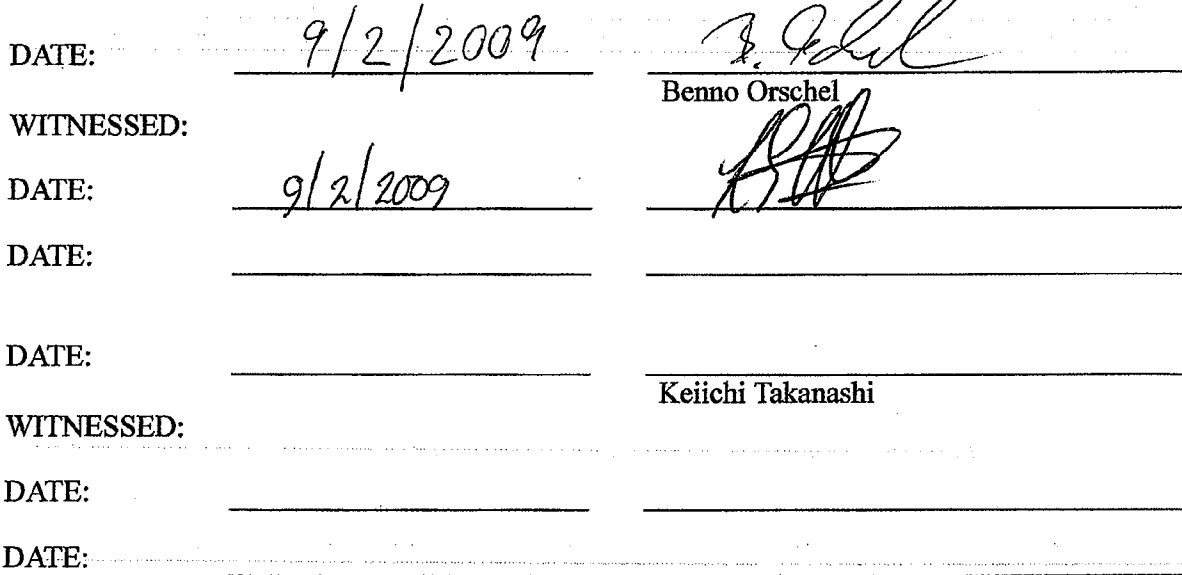 DATE: 9/2/2009 B. Orschel
Benno Orschel
WITNESSED:
DATE: 9/2/2009
DATE:
DATE:
Keiichi Takanashi
WITNESSED:
DATE:
DATE: